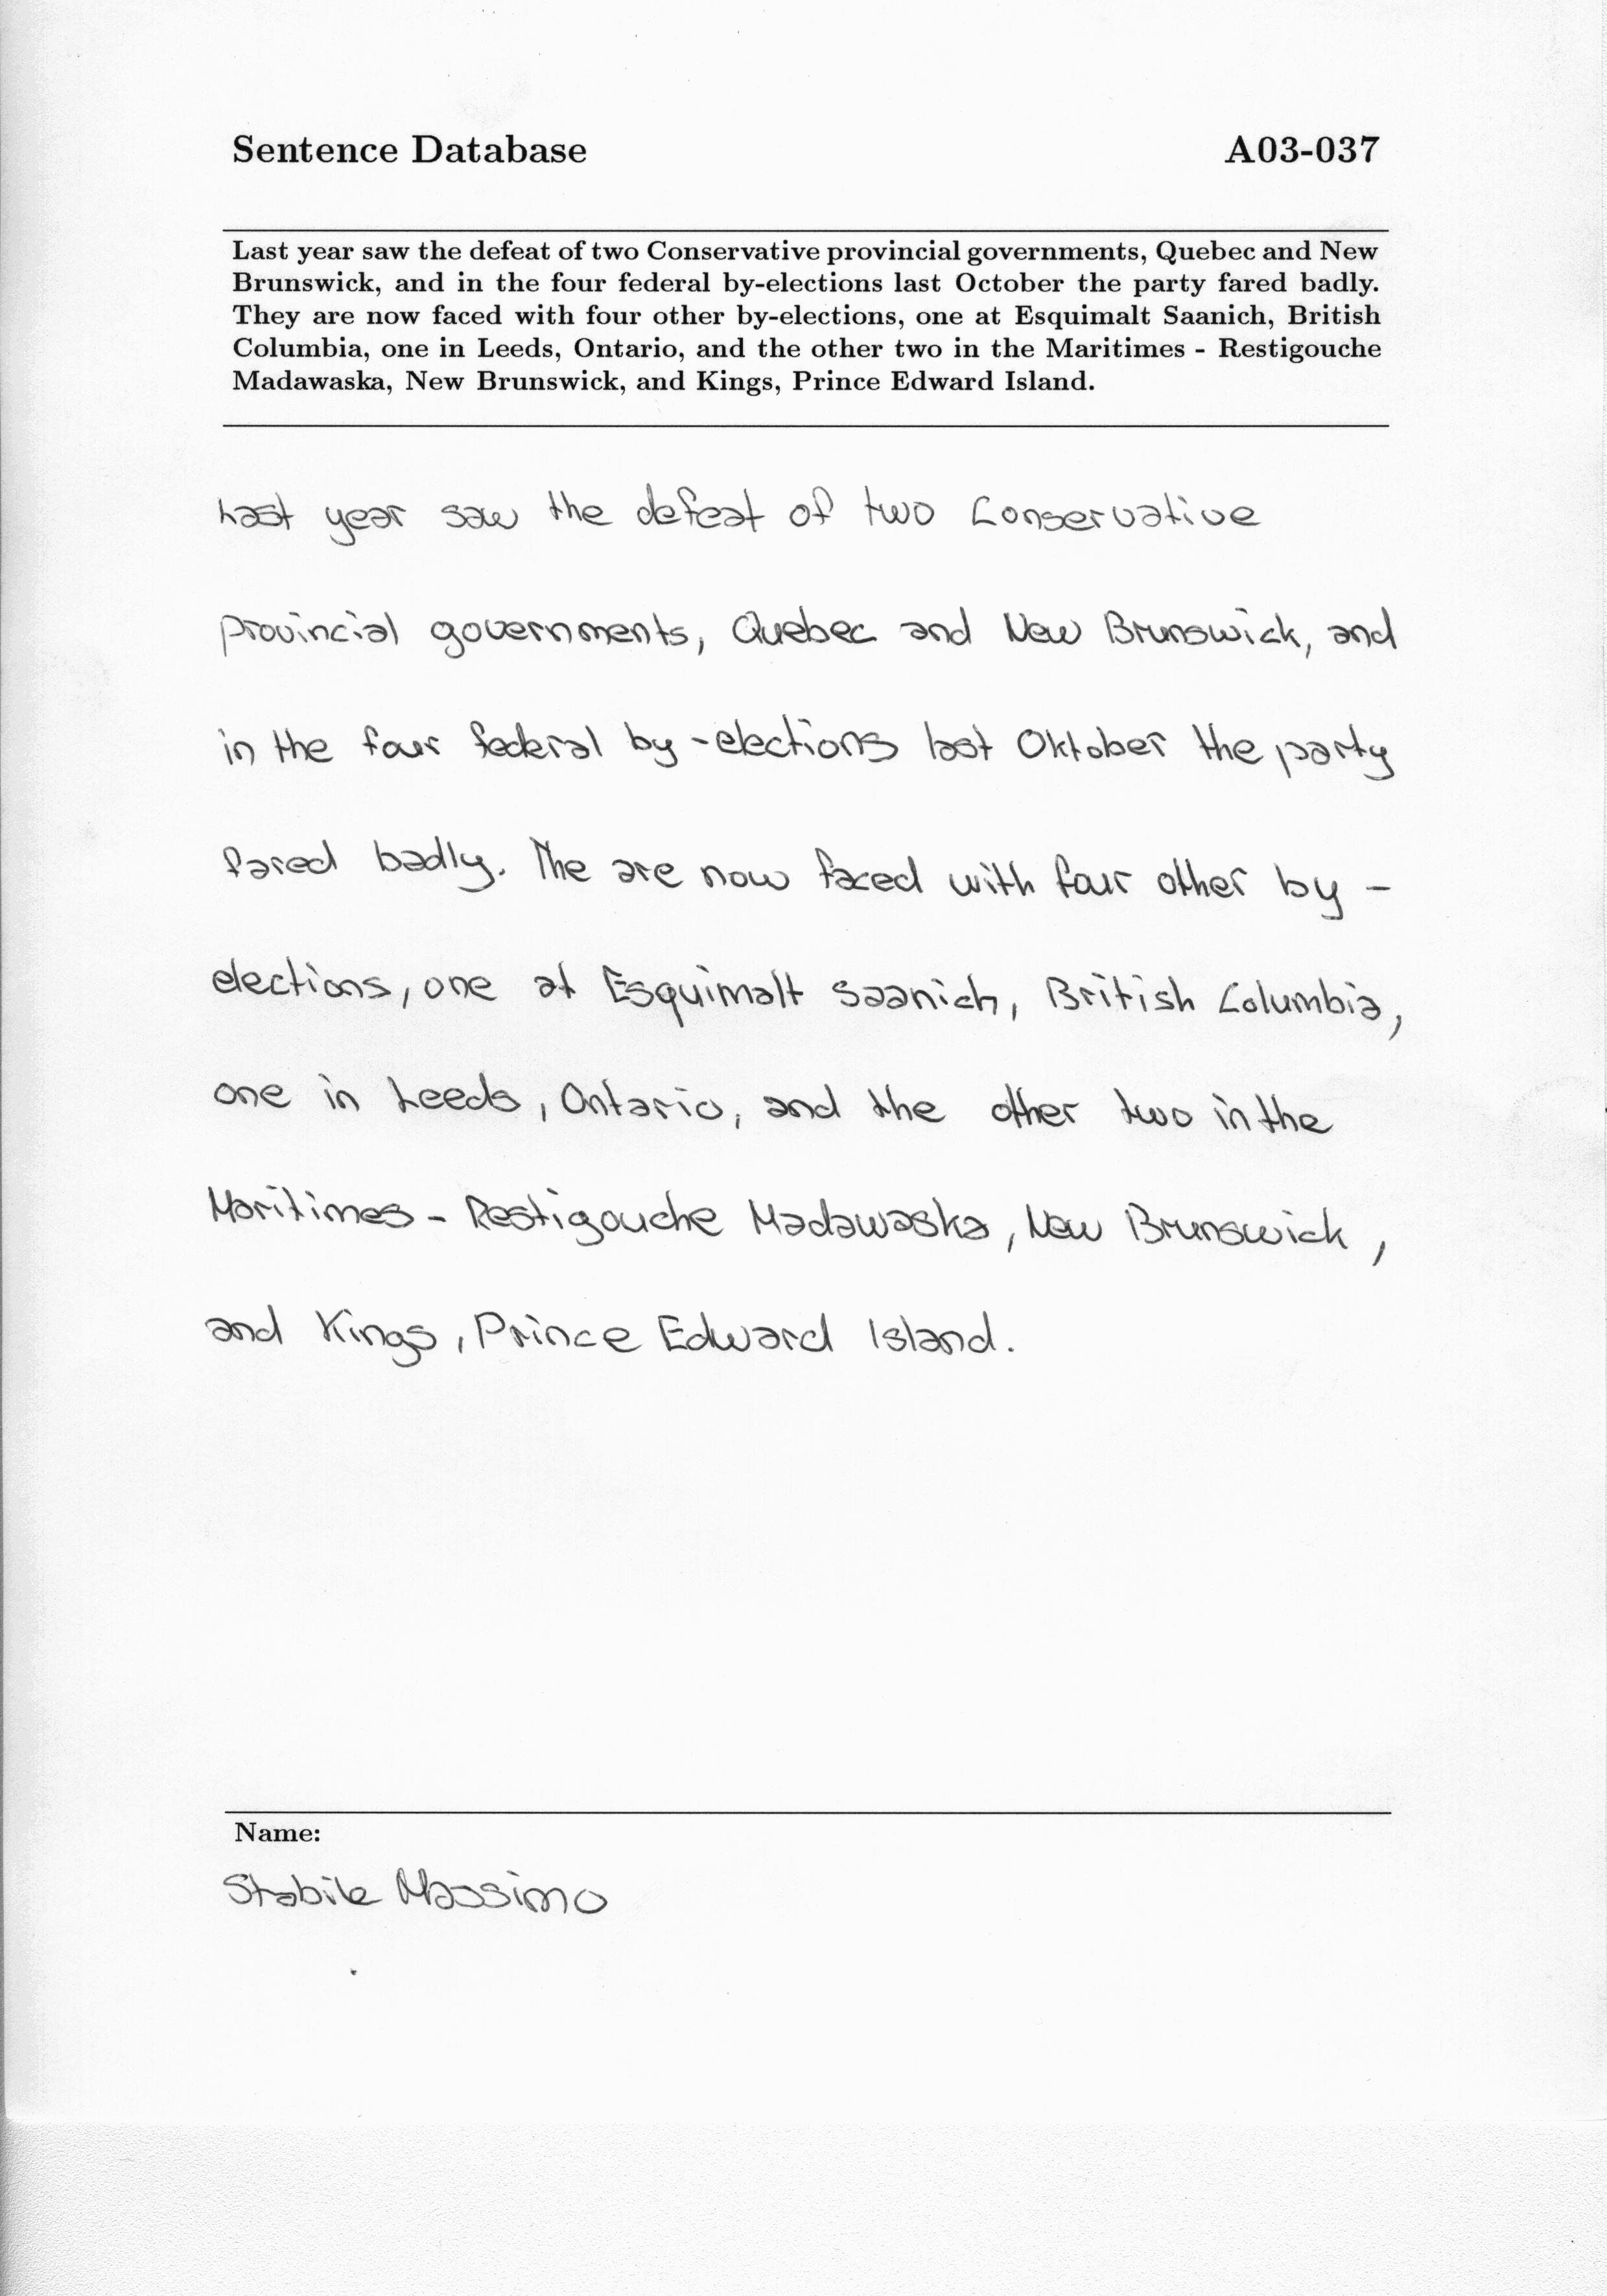 Sentence Database A03-037
Last year saw the defeat of two Conservative provincial governments, Quebec and New
Brunswick, and in the four federal by-elections last October the party fared badly.
They are now faced with four other by-elections, one at Esquimalt Saanich, British
Columbia, one in Leeds, Ontario, and the other two in the Maritimes - Restigouche
Madawaska, New Brunswick, and Kings, Prince Edward Island.
Last year saw the defeat of two Conservative
provincial governments, Quebec and New Brunswick, and
in the four federal by-elections last Oktober the party
fared badly. The are now faced with four other by-
elections, one at Esquimalt Saanich, British Columbia,
one in Leeds, Ontario, and the other two in the
Maritimes - Restigouche Madawaska, New Brunswick,
and Kings, Prince Edward Island.
Name:
Stabile Massimo